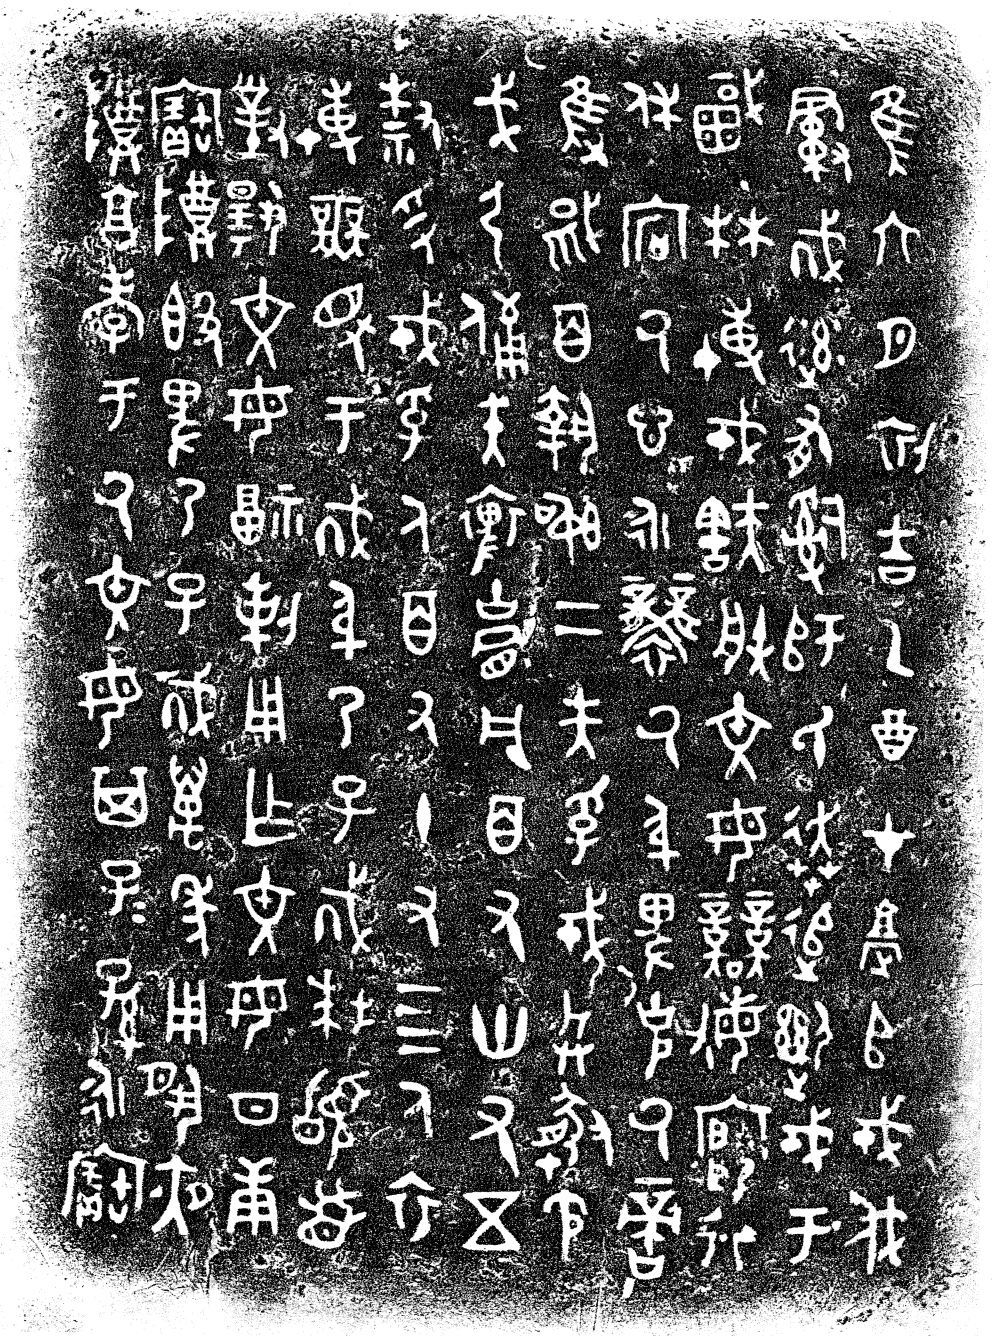 隹六月初吉乙酉才𩫏𠂤戎伐
𢾅𢦚率有嗣師氏奔追䢦戎于
棫林博戎㝬朕文母競敏啟行
休宕厥心永襲厥身卑克厥啻
隻馘百執訊二夫孚戎兵盾矛
戈弓備矢裨冑凡百又卅又五
款孚戎孚人百又十又四人衣
博無尤于𢦚身乃子𢦚拜𩒨首
對揚文母福剌用乍文母日庚
寶尊簋卑乃子𢦚萬年用夙夜
尊享孝于厥文母其子=孫=永寶